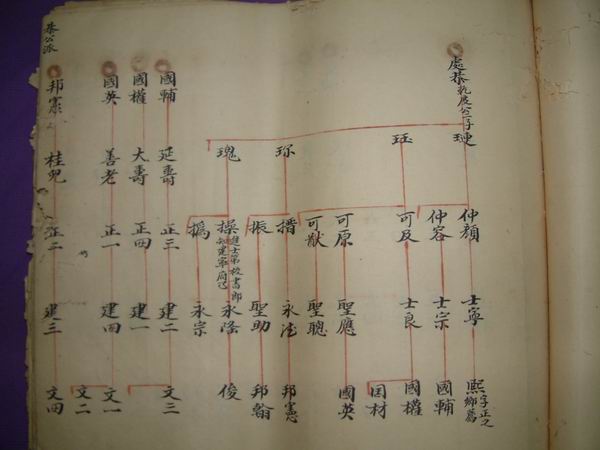 處恭 乾度公二子
璉
仲顏
士寧
熙 字正之 鄉薦
仲容
士宗
國輔
珏
可及
士良
國權
国材
可原
聖應
國英
可猷
聖聰
珎
搢
邦憲
振
聖助
邦翰
瑰
操 進士第校書郎 知建寧
永隆
俊
撝
永宗
國輔
延壽
正三
建二
文三
國權
大壽
正四
建一
國英
善老
正一
建四
文一
文二
邦憲
桂兒
正二
建三
文四
恭公派